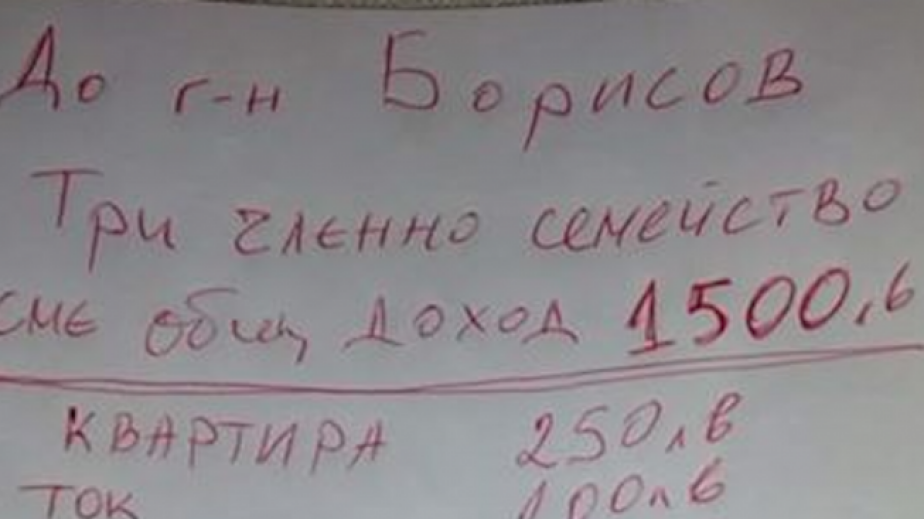 До г-н Борисов
Три членно семейство
сме общ доход 1500лв
КВАРТИРА 250лв
ТОК 100лв